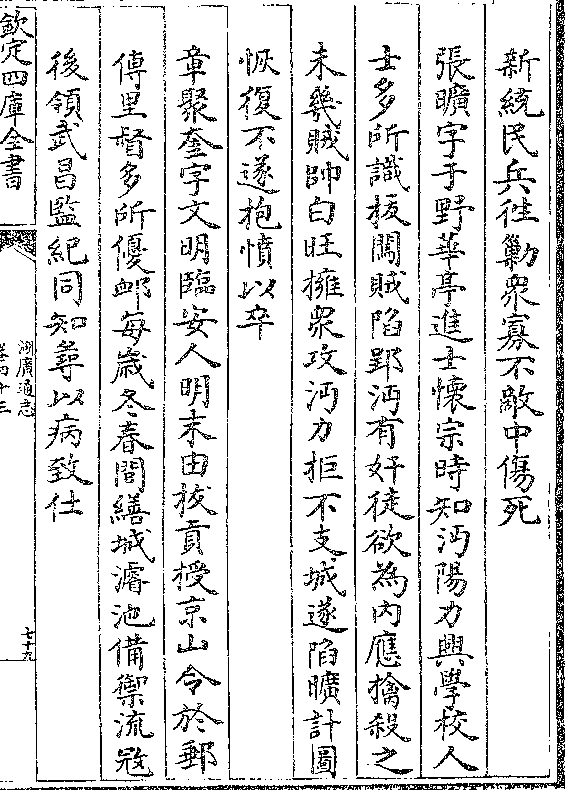 新統民兵徃勦衆寡不敵中傷死
張曠字于野華亭進士懷宗時知沔陽力興學校人
士多所識㧞闖賊陷郢沔有奸徒欲為内應擒殺之
未幾賊帥白旺擁衆攻沔力拒不支城遂陷曠計圖
恢復不遂抱憤以卒
章聚奎字文明臨安人明末由㧞貢授京山令於郵
傳里督多所優䘏每歲冬春間繕城濬池備禦流㓂
後領武昌監紀同知尋以病致仕
欽定四庫全書
湖廣通志
卷四十三
七十九